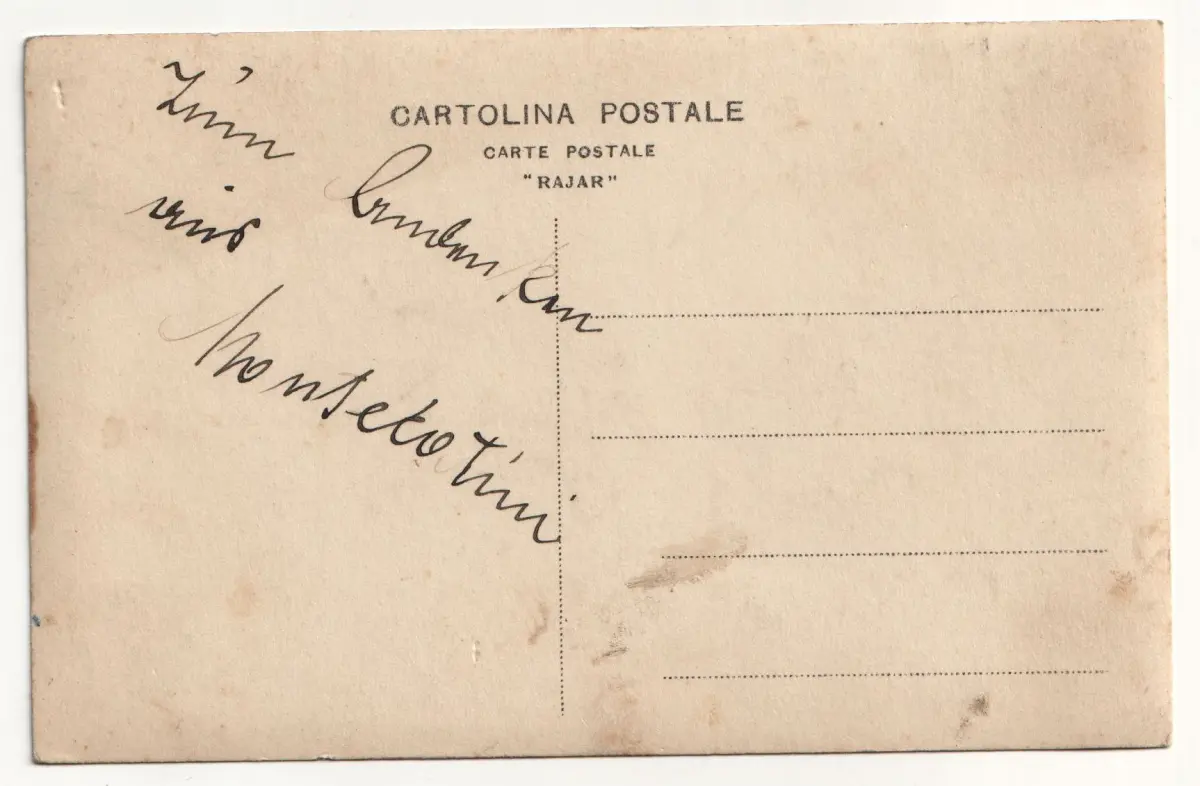 CARTOLINA POSTALE
CARTE POSTALE
"RAJAR"
Zum Andenken
aus
Montekatini